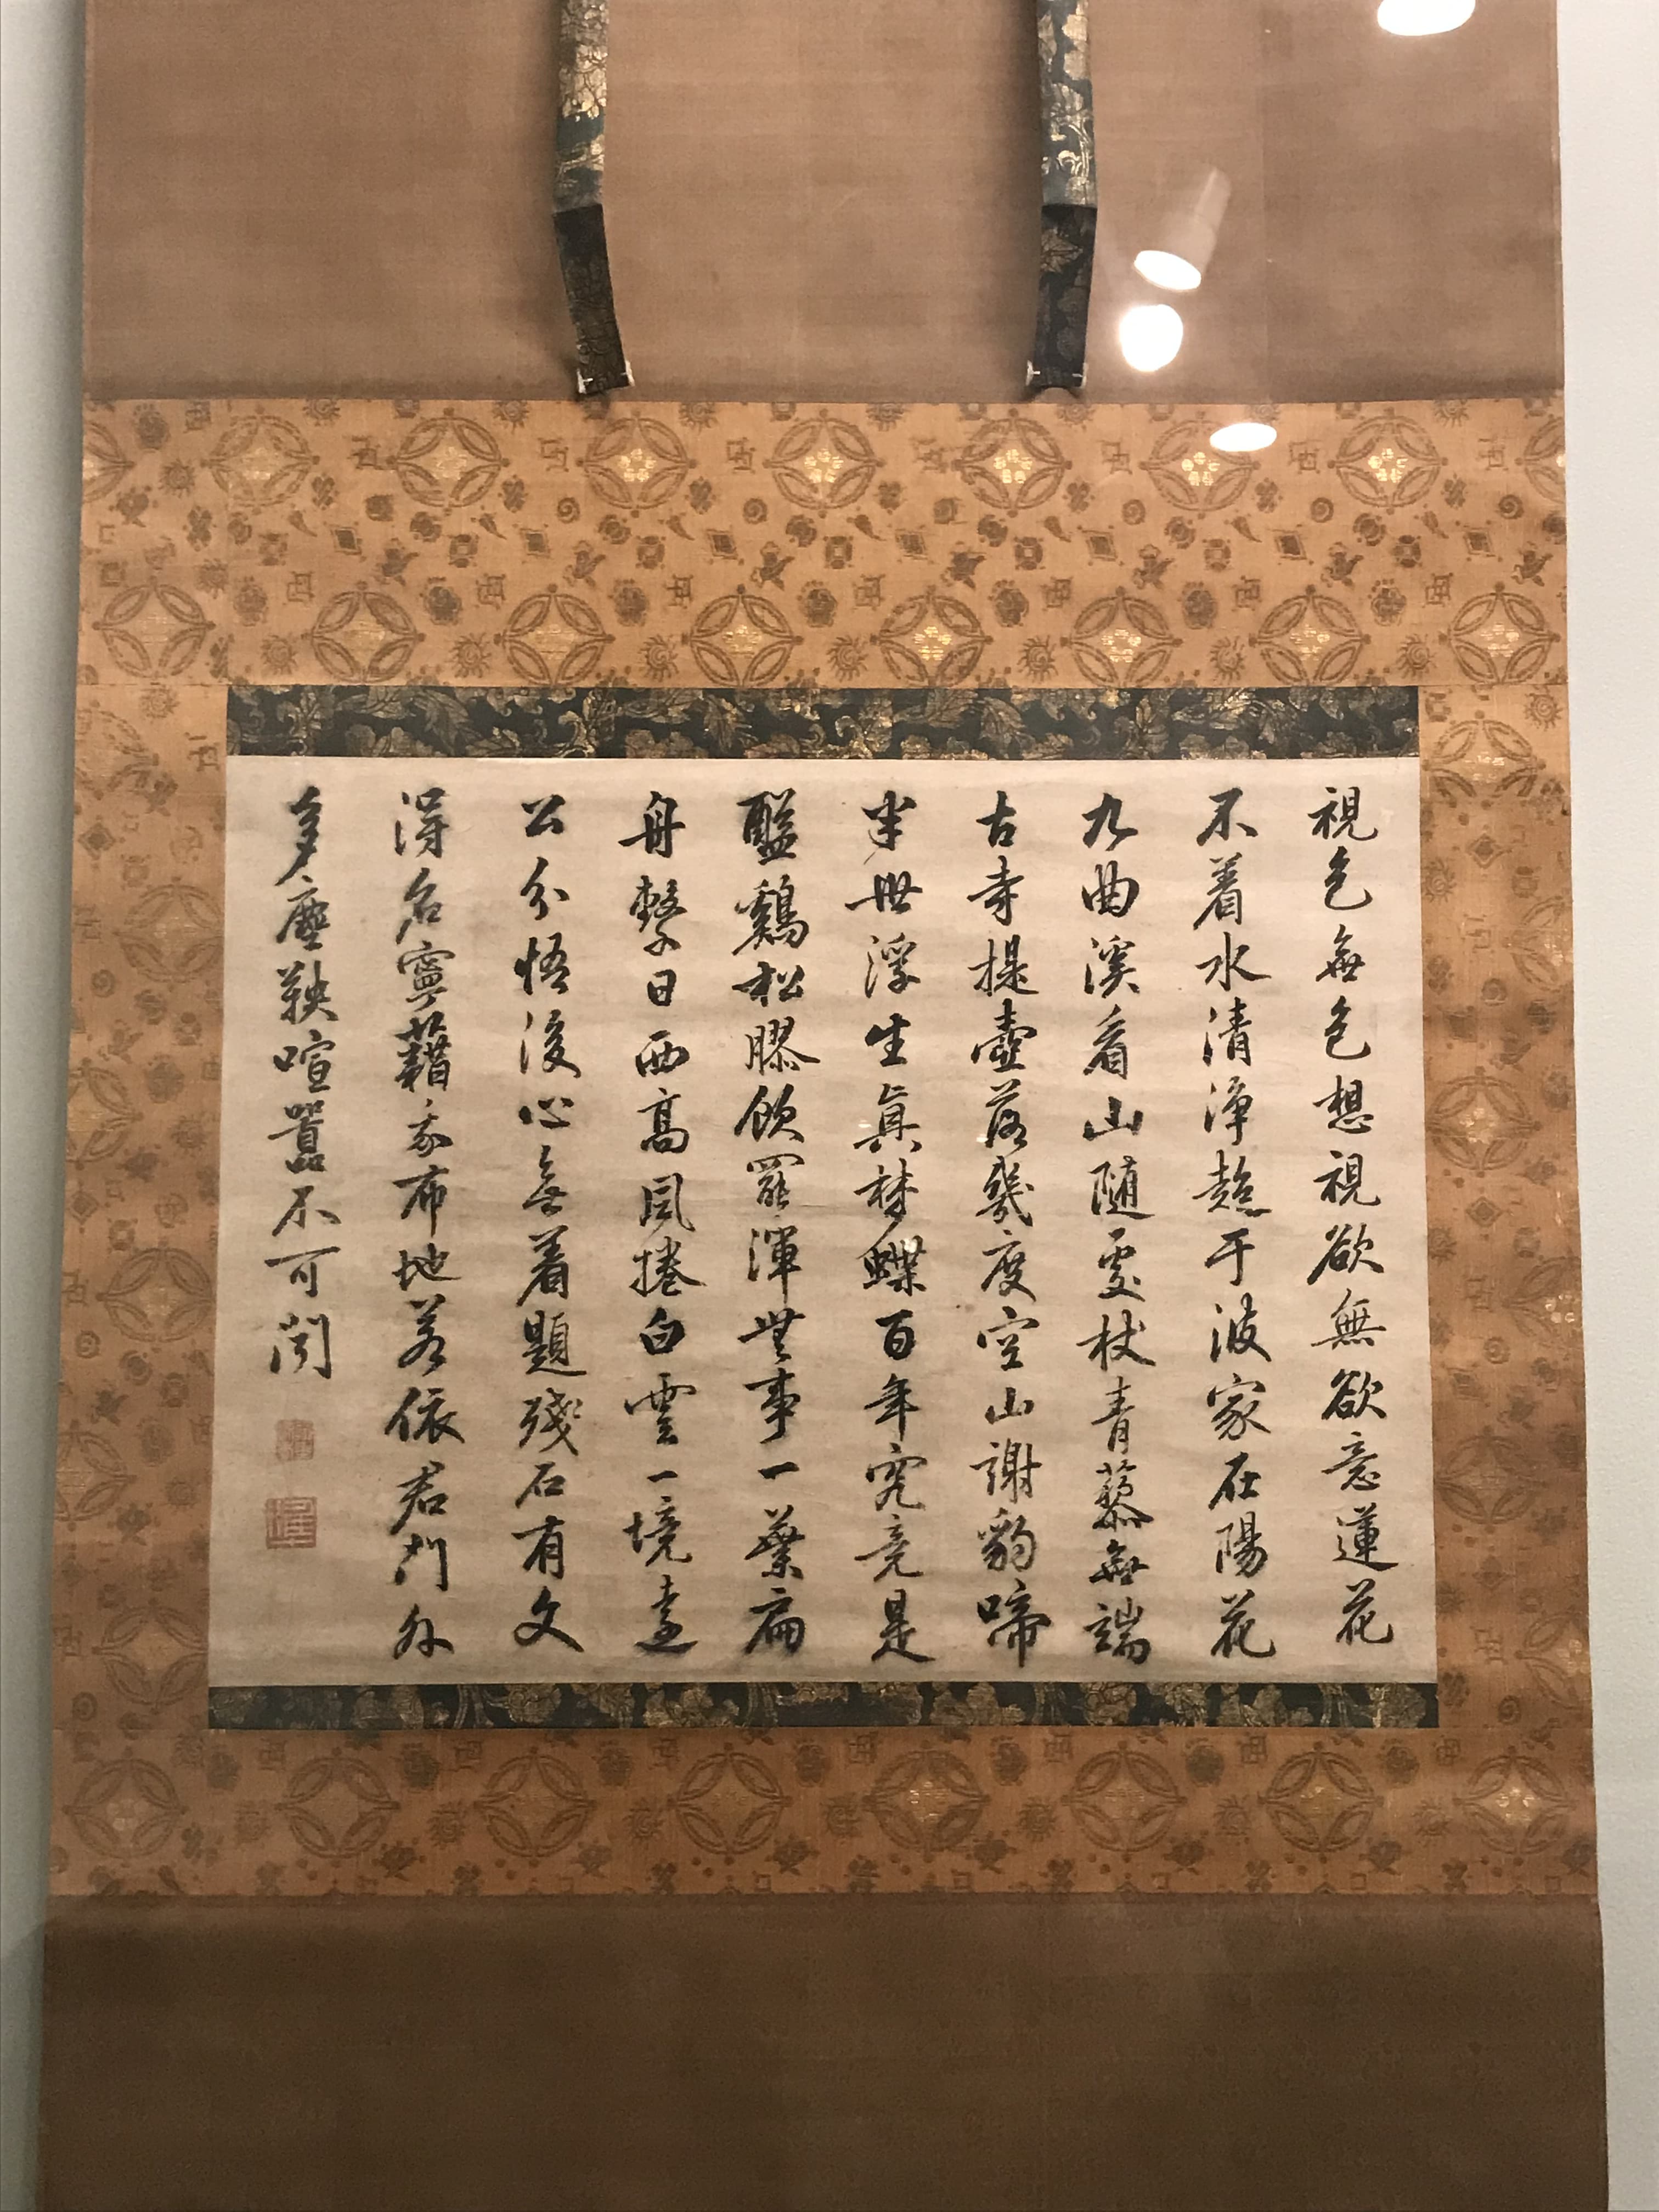 視色無色想視欲無欲意蓮花
不着水清淨超于彼家在陽花
九曲溪看山随處杖青藜無端
古寺提壺落幾度空山謝豹啼
半世浮生真梦蝶百年究竟是
醯鷄松醪飲罷渾無事一葉扁
舟繫日西高風捲白雲一境遠
公分悟後心無着題殘石有文
得名寧藉金布地若依君門外
多塵鞅喧囂不可聞